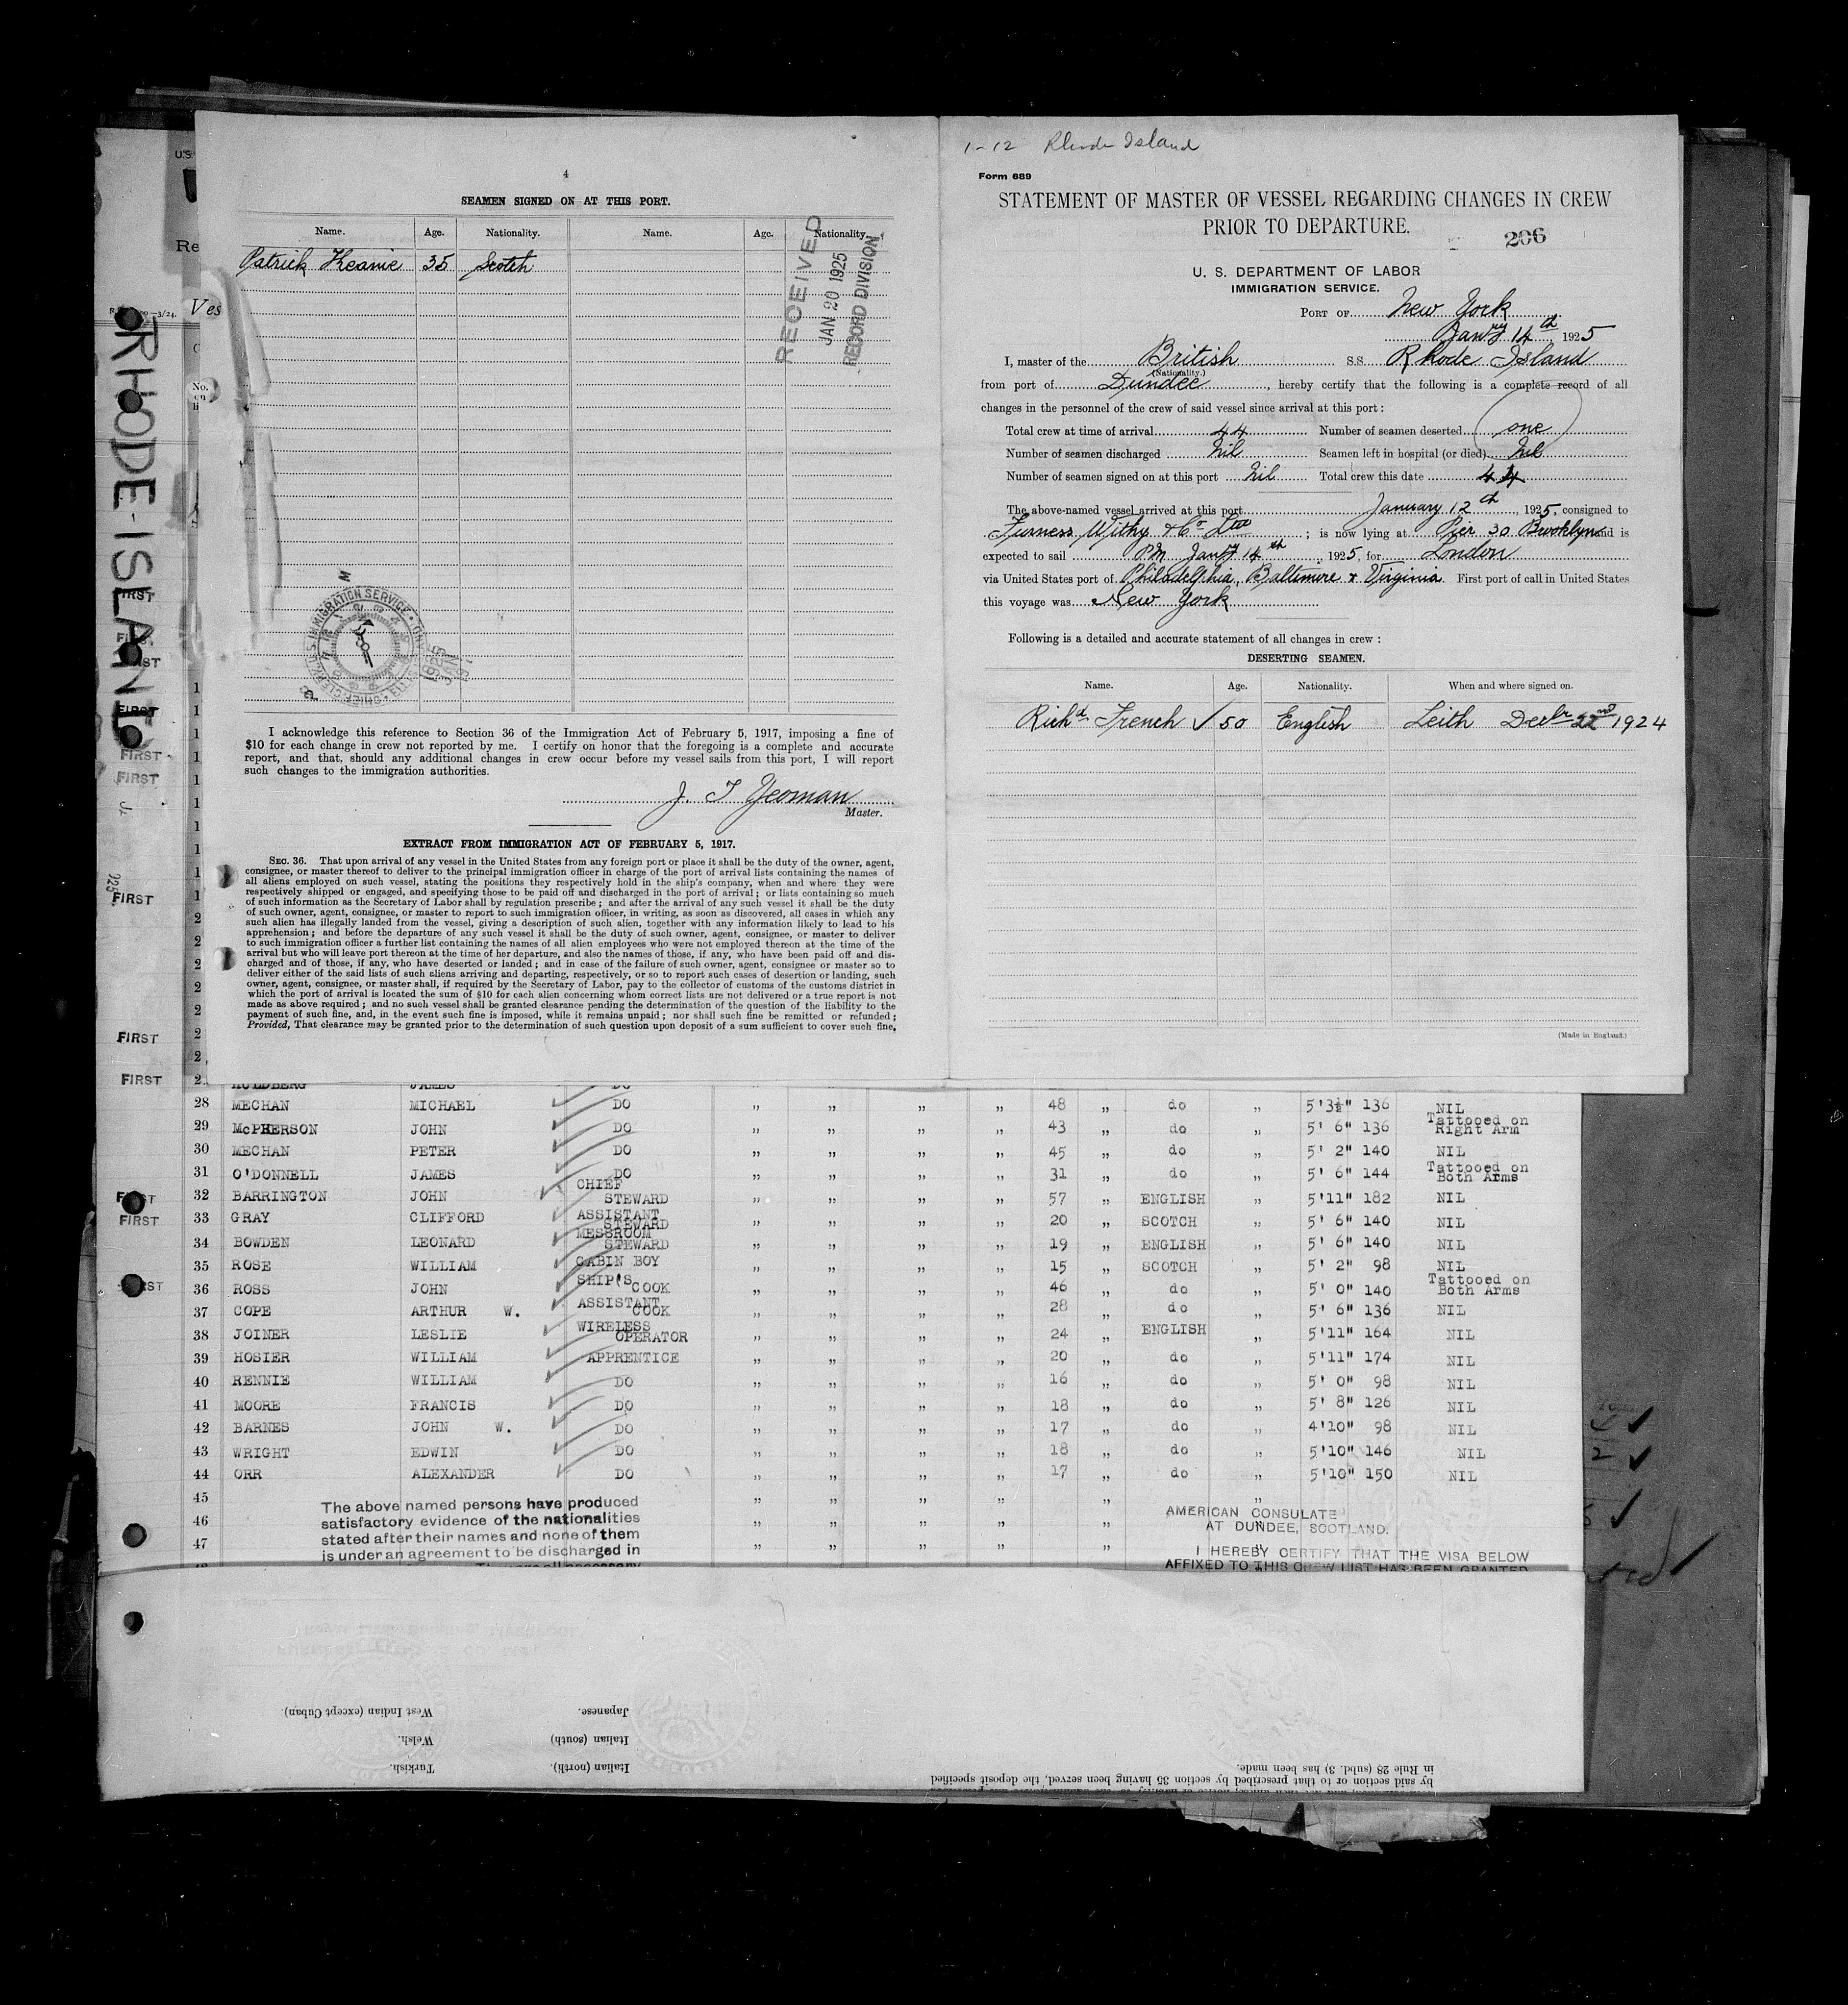 4
SEAMEN SIGNED ON AT THIS PORT.
Name. Age. Nationality. Name. Age. Nationality.
Patrick Keanie 35 Scotch
RECEIVED
JAN 20 1925
RECORD DIVISION
I acknowledge this reference to Section 36 of the Immigration Act of February 5, 1917, imposing a fine of
$10 for each change in crew not reported by me. I certify on honor that the foregoing is a complete and accurate
report, and that, should any additional changes in crew occur before my vessel sails from this port, I will report
such changes to the immigration authorities.
J. T Yeoman
Master.
EXTRACT FROM IMMIGRATION ACT OF FEBRUARY 5, 1917.
SEC. 36. That upon arrival of any vessel in the United States from any foreign port or place it shall be the duty of the owner, agent,
consignee, or master thereof to deliver to the principal immigration officer in charge of the port of arrival lists containing the names of
all aliens employed on such vessel, stating the positions they respectively hold in the ship's company, when and where they were
respectively shipped or engaged, and specifying those to be paid off and discharged in the port of arrival; or lists containing so much
of such information as the Secretary of Labor shall by regulation prescribe; and after the arrival of any such vessel it shall be the duty
of such owner, agent, consignee, or master to report to such immigration officer, in writing, as soon as discovered, all cases in which any
such alien has illegally landed from the vessel, giving a description of such alien, together with any information likely to lead to his
apprehension; and before the departure of any such vessel it shall be the duty of such owner, agent, consignee, or master to deliver
to such immigration officer a further list containing the names of all alien employees who were not employed thereon at the time of the
arrival but who will leave port thereon at the time of her departure, and also the names of those, if any, who have been paid off and dis-
charged and of those, if any, who have deserted or landed; and in case of the failure of such owner, agent, consignee or master so to
deliver either of the said lists of such aliens arriving and departing, respectively, or so to report such cases of desertion or landing, such
owner, agent, consignee, or master shall, if required by the Secretary of Labor, pay to the collector of customs of the customs district in
which the port of arrival is located the sum of $10 for each alien concerning whom correct lists are not delivered or a true report is not
made as above required; and no such vessel shall be granted clearance pending the determination of the question of the liability to the
payment of such fine, and, in the event such fine is imposed, while it remains unpaid; nor shall such fine be remitted or refunded;
Provided, That clearance may be granted prior to the determination of such question upon deposit of a sum sufficient to cover such fine.
1-12 Rhode Island
Form 689
STATEMENT OF MASTER OF VESSEL REGARDING CHANGES IN CREW
PRIOR TO DEPARTURE.
206
U. S. DEPARTMENT OF LABOR
IMMIGRATION SERVICE.
PORT OF New York
Jany 14th 1925
I, master of the British S.S. Rhode Island
(Nationality.)
from port of Dundee, hereby certify that the following is a complete record of all
changes in the personnel of the crew of said vessel since arrival at this port:
Total crew at time of arrival 44 Number of seamen deserted one
Number of seamen discharged Nil Seamen left in hospital (or died) Nil
Number of seamen signed on at this port Nil Total crew this date 44
The above-named vessel arrived at this port January 12th, 1925, consigned to
Furness Withy & Co Ltd; is now lying at Pier 30 Brooklyn and is
expected to sail P.M. Jany 14th, 1925, for London
via United States port of Philadelphia, Baltimore & Virginia. First port of call in United States
this voyage was New York
Following is a detailed and accurate statement of all changes in crew:
DESERTING SEAMEN.
Name. Age. Nationality. When and where signed on.
Richd French ✓ 50 English Leith Decbr 22nd 1924
(Made in England.)
RHODE-ISLAND
FIRST
FIRST
FIRST
FIRST
FIRST
FIRST
FIRST
FIRST
FIRST
28 MECHAN MICHAEL DO " " " " 48 " do " 5'3½" 136 NIL
29 McPHERSON JOHN DO " " " " 43 " do " 5' 6" 136 Tattooed on Right Arm
30 MECHAN PETER DO " " " " 45 " do " 5' 2" 140 NIL
31 O'DONNELL JAMES DO " " " " 31 " do " 5' 6" 144 Tattooed on Both Arms
32 BARRINGTON JOHN CHIEF STEWARD " " " " 57 " ENGLISH " 5'11" 182 NIL
33 GRAY CLIFFORD ASSISTANT STEWARD " " " " 20 " SCOTCH " 5' 6" 140 NIL
34 BOWDEN LEONARD MESSROOM STEWARD " " " " 19 " ENGLISH " 5' 6" 140 NIL
35 ROSE WILLIAM CABIN BOY " " " " 15 " SCOTCH " 5' 2" 98 NIL
36 ROSS JOHN SHIP'S COOK " " " " 46 " do " 5' 0" 140 Tattooed on Both Arms
37 COPE ARTHUR W. ASSISTANT COOK " " " " 28 " do " 5' 6" 136 NIL
38 JOINER LESLIE WIRELESS OPERATOR " " " " 24 " ENGLISH " 5'11" 164 NIL
39 HOSIER WILLIAM APPRENTICE " " " " 20 " do " 5'11" 174 NIL
40 RENNIE WILLIAM DO " " " " 16 " do " 5' 0" 98 NIL
41 MOORE FRANCIS DO " " " " 18 " do " 5' 8" 126 NIL
42 BARNES JOHN W. DO " " " " 17 " do " 4'10" 98 NIL
43 WRIGHT EDWIN DO " " " " 18 " do " 5'10" 146 NIL
44 ORR ALEXANDER DO " " " " 17 " do " 5'10" 150 NIL
45
46
47
The above named persons have produced
satisfactory evidence of the nationalities
stated after their names and none of them
is under an agreement to be discharged in
AMERICAN CONSULATE
AT DUNDEE, SCOTLAND.
I HEREBY CERTIFY THAT THE VISA BELOW
AFFIXED TO THIS CREW LIST HAS BEEN GRANTED
West Indian (except Cuban).
Welsh.
Turkish.
Japanese.
Italian (south).
Italian (north).
by said section or to that prescribed by section 35 having been served, the deposit specified
in Rule 28 (subd. 3) has been made.